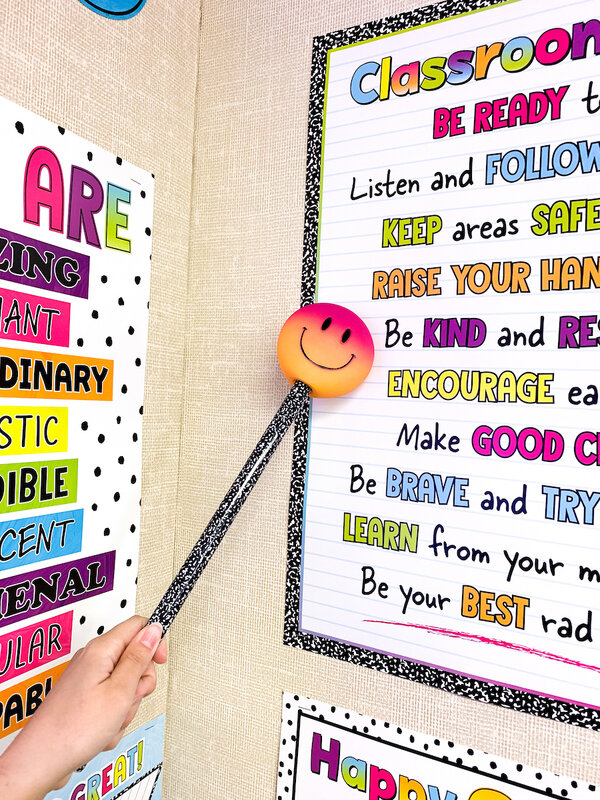 ARE
ZING
IANT
DINARY
STIC
DIBLE
CENT
ENAL
ULAR
PABL
GREAT!
Classroom
BE READY t
Listen and FOLLOW
KEEP areas SAFE
RAISE YOUR HAN
Be KIND and RES
ENCOURAGE ea
Make GOOD CH
Be BRAVE and TRY
LEARN from your m
Be your BEST rad
Happy